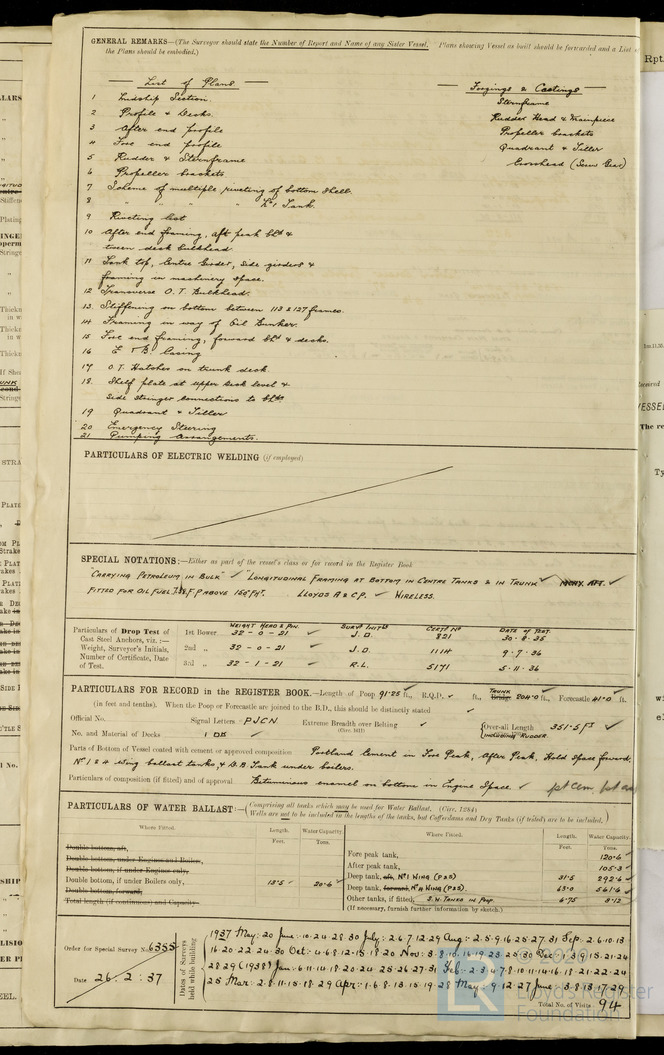 GENERAL REMARKS—(The Surveyor should state the Number of Report and Name of any Sister Vessel. Plans showing Vessel as built should be forwarded and a List of
the Plans should be embodied.)
List of Plans
1 Midship Section
2 Profile & Decks.
3 After end profile
4 Fore end profile
5 Rudder & Sternframe
6 Propeller brackets
7 Scheme of multiple riveting of bottom shell.
8 " " " " No 1 Tank.
9 Riveting list
10 After end framing, aft peak bhd &
tween deck bulkhead
11 Tank top, Centre Girder, side girders &
framing in machinery space.
12 Transverse O.T. Bulkhead.
13 Stiffening on bottom between 113 & 127 frames.
14 Framing in way of Oil Bunker.
15 Fore end framing, forward bhd & decks.
16 E & B. Casing
17 O.T. Hatches on trunk deck
18. Shelf plate at upper deck level &
side stringer connections to bhds
19 Quadrant & Tiller
20 Emergency Steering
21 Pumping Arrangements.
Forgings & Castings
Sternframe
Rudder Head & Mainpiece
Propeller brackets
Quadrant & Tiller
Crosshead (Screw Gear)
PARTICULARS OF ELECTRIC WELDING (if employed)
SPECIAL NOTATIONS:—Either as part of the vessel's class or for record in the Register Book
"CARRYING PETROLEUM IN BULK" ✓ "LONGITUDINAL FRAMING AT BOTTOM IN CENTRE TANKS & IN TRUNK" ✓ MCHY. AFT. ✓
FITTED FOR OIL FUEL F.P ABOVE 150°F. LLOYDS A & C.P. ✓ WIRELESS.
Particulars of Drop Test of
Cast Steel Anchors, viz.:—
Weight, Surveyor's Initials,
Number of Certificate, Date
of Test.
WEIGHT HEAD & PIN. SURV. INITLS CERTF NO DATE OF TEST.
1st Bower 32 - 0 - 21 ✓ J.D. 821 30 . 8 . 35
2nd " 32 - 0 - 21 ✓ J.D. 1114 9 . 7 . 36
3rd " 32 - 1 - 21 ✓ R.L. 5171 5 . 11 . 36
PARTICULARS FOR RECORD in the REGISTER BOOK.—Length of Poop 91.25 ft., R.Q.D. ✓ ft., TRUNK Bridge 204.0 ft., Forecastle 41.0 ft.
(in feet and tenths). When the Poop or Forecastle are joined to the B.D., this should be distinctly stated ✓
Official No. Signal Letters PJCN. Extreme Breadth over Belting (Circ. 1611) ✓ Over-all Length 351.5 FT ✓
INCLUDING RUDDER
No. and Material of Decks 1 DK ✓
Parts of Bottom of Vessel coated with cement or approved composition Portland Cement in Fore Peak, After Peak, Hold space forward,
No 1 & 4 wing ballast tanks, & D.B Tank under boilers.
Particulars of composition (if fitted) and of approval Bituminous enamel on bottom in Engine Space ✓ pt cem,
PARTICULARS OF WATER BALLAST:—(Comprising all tanks which may be used for Water Ballast. (Circ. 1284)
Wells are not to be included in the lengths of the tanks, but Cofferdams and Dry Tanks (if tested) are to be included.)
Where Fitted. Length. Water Capacity. Where Fitted. Length. Water Capacity.
Feet. Tons. Feet. Tons.
Double bottom, aft,
Double bottom, under Engines and Boilers,
Double bottom, if under Engines only,
Double bottom, if under Boilers only, 13.5 ✓ 20.6 ✓
Double bottom, forward,
Total length (if continuous) and Capacity
Fore peak tank, 120.6 ✓
After peak tank, 105.3 ✓
Deep tank, aft, No 1 WING (P & S) 31.5 292.6 ✓
Deep tank, forward, No 4 WING (P & S). 63.0 561.6 ✓
Other tanks, if fitted, S.W. TANKS IN POOP. 6.75 3.12
(If necessary, furnish further information by sketch.)
Order for Special Survey No. 6355
Date 26 . 2 . 37
Dates of Surveys
held while building
1937 May: 20 June: 10.24.28.30 July: 2.6.7.12.29 Aug: 2.5.9.16.25.27.31 Sep: 2.6.10.13
16.20.22.24.30 Oct: 4.6.8.12.15.18.20 Nov: 3.8.10.16.19.23.25.30 Dec: 1.3.9.15.21.24
28.29 (1938) Jan: 6.11.14.18.20.24.25.26.27.31 Feb: 2.3.4.7.8.10.11.14.16.18.21.22.24
25 Mar: 2.8.11.15.18.29 Apr: 1.6.8.13.15.19.28 May: 9.12.27 June: 3.8.13.17.29
Total No. of Visits 94
© 2019
Lloyd's Register
Foundation